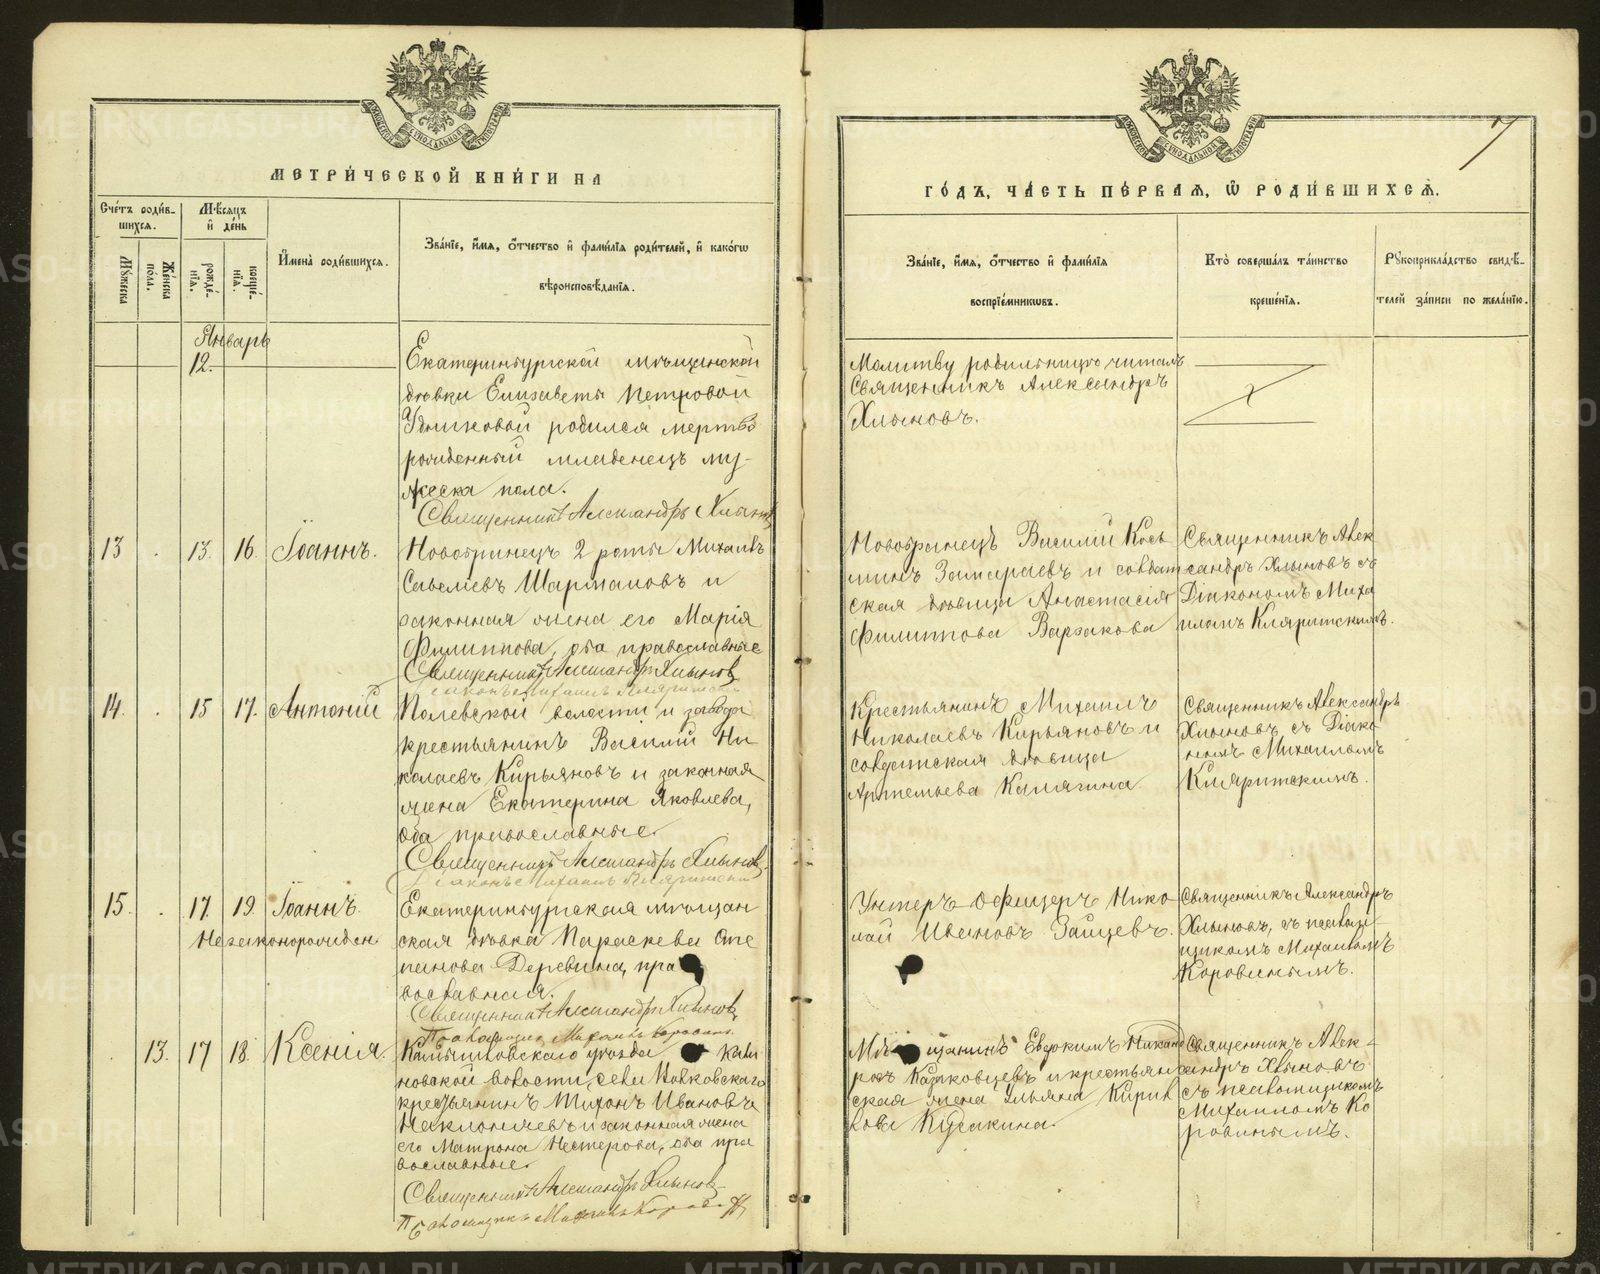 МЕТРИ́ЧЕСКОЙ КНИ́ГИ НА
Сче́тъ роди́в-
шихся.
Мѣ́сяцъ
и҆ де́нь
Му́жеска
Же́нска
по́ла.
рожде́-
нїя.
креще́-
нїя.
И҆мена̀ роди́вшихся.
Зва́нїе, и҆́мя, ѻ҆́тчество и҆ фами́лїя роди́телей, и҆ како́гѡ
вѣроисповѣ́данїя.
Январь
12.
Екатеринбургской мѣщанской
дѣвки Елизаветы Петровой
родился мертво
рожденный младенецъ му-
жеска пола.
Священникъ Александръ Хлыновъ
13 . 13. 16. Іоаннъ.
Новобранецъ 2 роты Михаилъ
Савеліевъ Шармановъ и
законная жена его Марія
Филиппова, оба православные
Священникъ Александръ Хлыновъ
Діаконъ Михаилъ Кляритскій
14. . 15 17. Антоній
Полевской волости и завода
крестьянинъ Василій Ни
колаевъ Кирьяновъ и законная
жена Екатерина Яковлева,
оба православные.
Священникъ Александръ Хлыновъ
Діаконъ Михаилъ Кляритскій
15. . 17. 19. Іоаннъ.
Незаконорожден.
Екатеринбургская мѣщан
ская дѣвка Параскева Сте
панова Деревина, пра
вославная.
Священникъ Александръ Хлыновъ
Псаломщикъ Михаилъ Коровинъ.
. 13. 17 18. Ксенія.
Камышловскаго уѣзда
новской волости, села
крестьянинъ Тихонъ Ивановъ
и законная жена
его Матрона Нестерова, оба пра
вославные.
Священникъ Александръ Хлыновъ
Псаломщикъ Михаилъ Коровинъ
7
ГО́ДЪ, ЧА́СТЬ ПЕ́РВАЯ, Ѡ҆ РОДИ́ВШИХСЯ.
Зва́нїе, и҆́мя, ѻ҆́тчество и҆ фами́лїя
воспрїе́мникѡвъ.
Кто̀ соверша́лъ та́инство
креще́нїя.
Рꙋкоприкла́дство свидѣ́-
телей за́писи по жела́нїю.
Молитву родильницѣ читалъ
Священникъ Александръ
Хлыновъ.
Новобранецъ Василій Кось
минъ Замараевъ и солдат
ская дѣвица Анастасія
Филиппова Варзакова
Священникъ Алек
сандръ Хлыновъ съ
Діакономъ Миха
иломъ Кляритскимъ.
Крестьянинъ Михаилъ
Николаевъ Кирьяновъ и
солдатская дѣвица
Артемьева Калягина
Священникъ Александръ
Хлыновъ съ Діако
номъ Михаиломъ
Кляритскимъ.
Унтеръ-Офицеръ Нико
лай Ивановъ Зайцевъ.
Священникъ Александръ
Хлыновъ, съ псалом-
щикомъ Михаиломъ
Коровинымъ.
Мѣщанинъ Евдокимъ Никанд
ровъ и крестьян
ская жена Ульяна Кирил
лова Кудакина.
Священникъ Алек-
сандръ Хлыновъ
съ псаломщикомъ
Михаиломъ Ко
ровинымъ.
METRIKI.GASO-URAL.RU